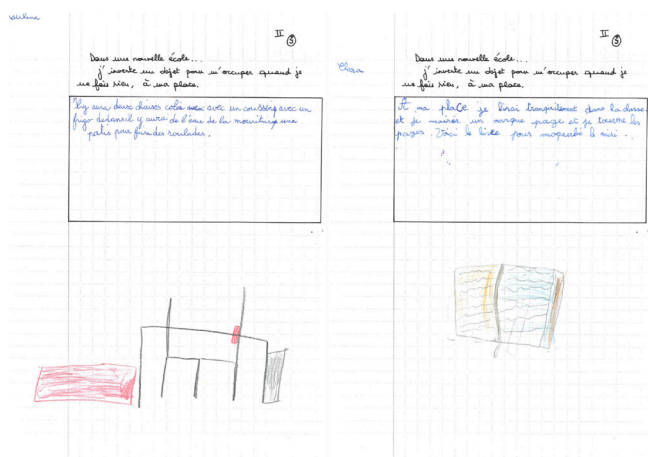 II
3
Dans une nouvelle école...
j'invente un objet pour m'occuper quand je
ne fais rien, à ma place.
Il y aura deux chaises colé avec un coussin avec un
frigo dedans il y aura de l'eau de la nourriture une
pour faire des roulades.
II
3
Clara
Dans une nouvelle école...
j'invente un objet pour m'occuper quand je
ne fais rien, à ma place.
A ma place je lirai tranquilement dans la classe
et je un marque page et je tourne les
pages. Voici le livre pour le midi...